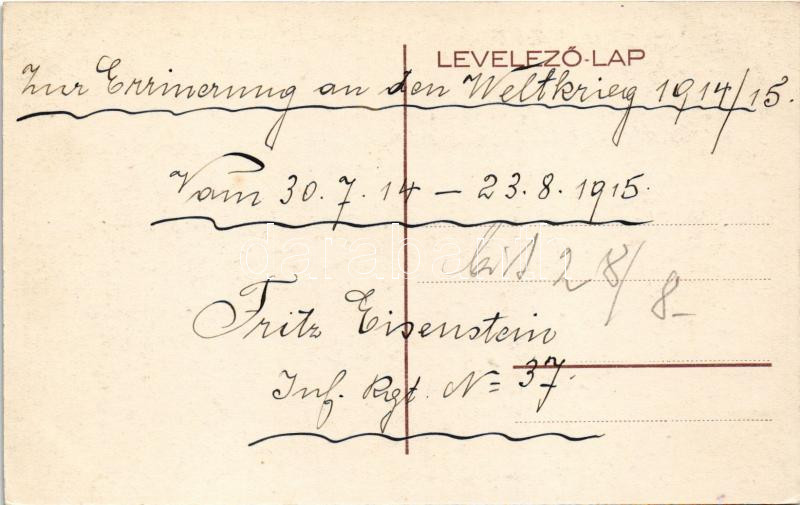 LEVELEZŐ-LAP
Zur Errinerung an den Weltkrieg 1914/15.
Vom 30.7.14 – 23.8.1915.
bis 28/8-
Fritz Eisenstein
Inf. Rgt. N= 37.